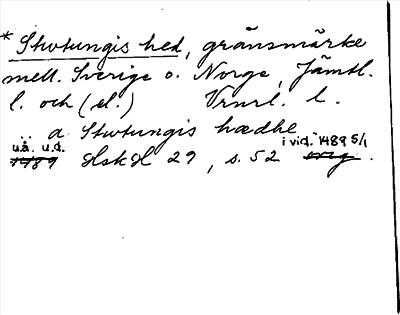 * Stwtungis hed, gränsmärke
mell. Sverige o. Norge, Jämtl.
l. och (el.) Vrml. l.
.. a Stwtungis hædhe
u.å. u.d. i vid. 1489 5/1
1489 HskH 29, s. 52 orig.